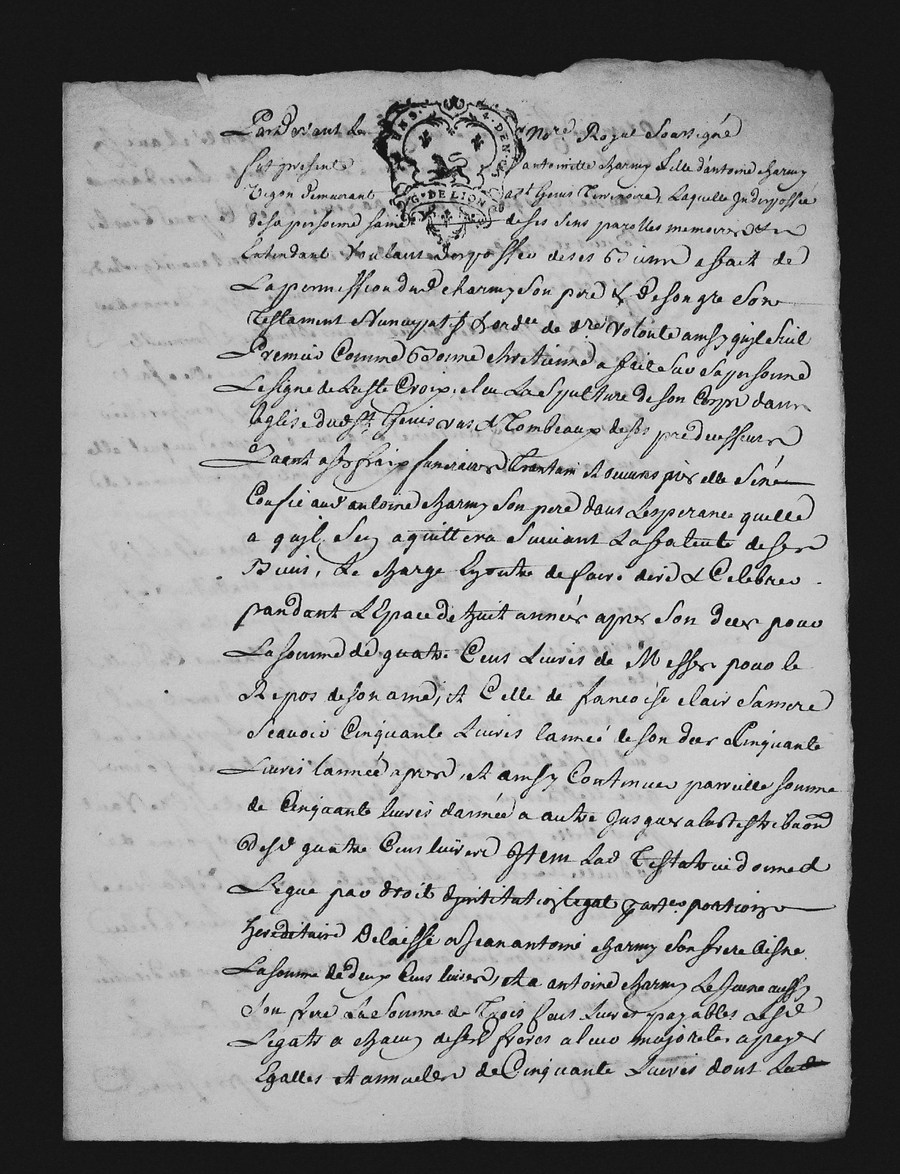 Pardevant le No.re Royal Soussigné
fut presente antoinette charmy fille d'antoine charmy
Vigon demeurant a St Genis Terrenoire, Laquelle Indisposée
de sa personne saine de ses sens parolles memoire et
Entendant Voulant disposée de ses biens a fait de
La permission dud charmy son pere & de son gre son
Testament nuncupatif & ordre de dre Volonte ainsy quil suit
Premier Comme bonne chretienne a fait sur sa personne
Le signe de La ste Croix, elue La sepulture de son Corps dans
leglise dud St Genis vas & Tombeaux de ses predecesseurs
Quant a ses fraix funeraires Trantain et œuvres pies elle s'en
Confie aud antoine charmy son pere dans Lesperance quelle
a quil sen aquittera suivant La faculté de ses
Biens, Le charge En outre de faire dire & Celebrer
pandant L'Espace de huit années apres son deces pour
La somme de quatre Cens Livres de Messes pour le
Repos de son ame, et Celle de francoise clair sa mere
scavoir Cinquante Livres lanneé de son deces Cinquante
Livres lannée apres et ainsy Continuer pareille somme
de Cinquante livres d'année a autre Jusques a la distribuon
desd quatre Cens livres Item Lad Testatrice donne &
Legue par droit d'institution legat part et portion
hereditaire delaisse a Jean antoine charmy son frere aisne
La somme de deux Cens livres, et a antoine charmy Le Jeune aussy
son frere La somme de Trois Cens Livres payables Lesd
Legats a chacun de sesd freres a leur majorete a payes
Egalles et annuelles de Cinquante Livres dont Lad
INS. 4. DEN.
G. DE LION